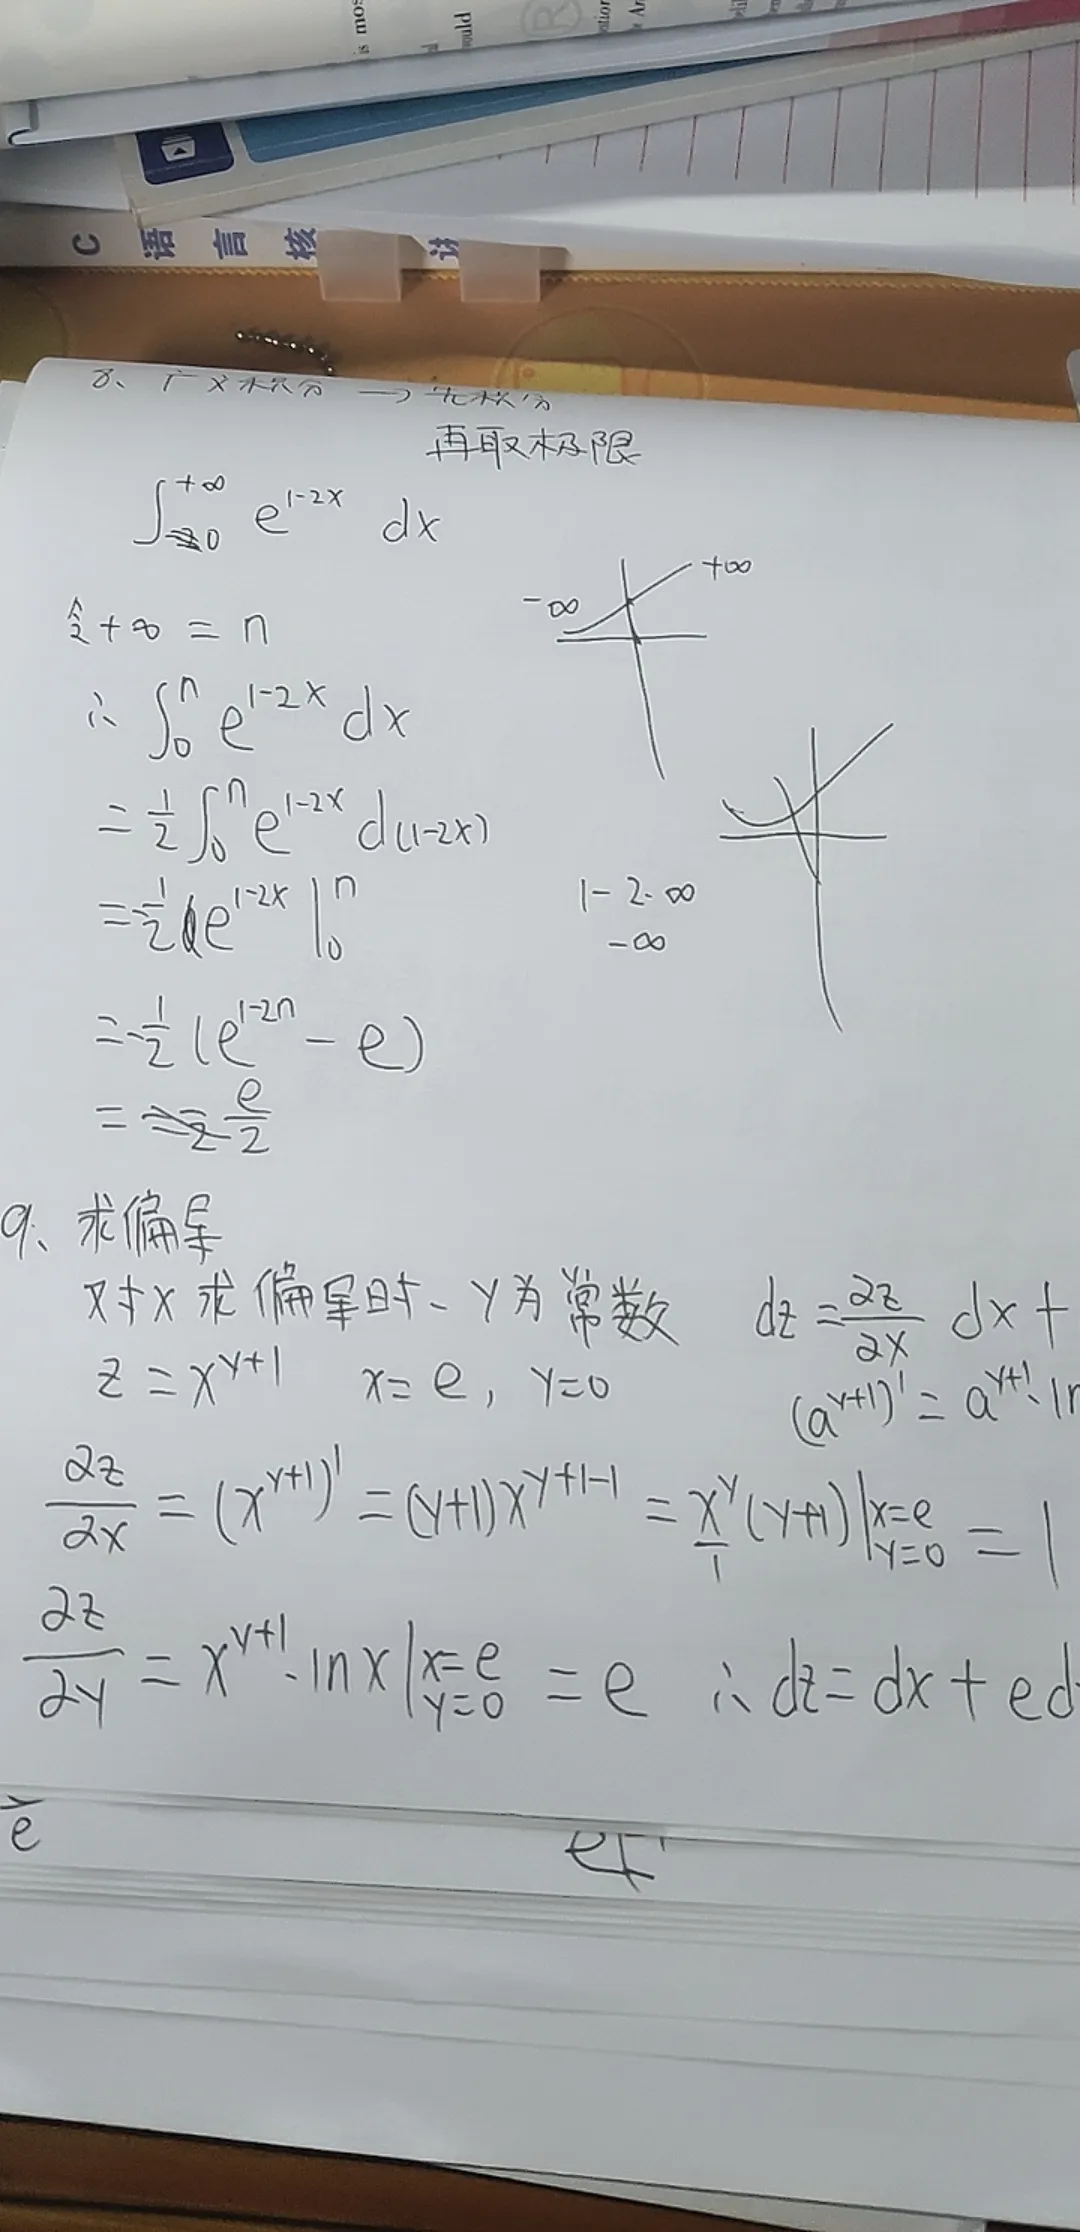 is mos
ould
C语言核
8、广义积分 → 先积分
再取极限
∫₋₃₀^{+∞} e^{1-2x} dx
令+∞ = n
-∞ +∞
∴ ∫₀ⁿ e^{1-2x} dx
= ½ ∫₀ⁿ e^{1-2x} d(1-2x)
= -½ (e^{1-2x} |₀ⁿ
1-2·∞
-∞
= -½ (e^{1-2n} - e)
= e/2
9、求偏导
对x求偏导时、y为常数 dz = ∂z/∂x dx +
z = x^{y+1} x = e, y=0 (a^{y+1})' = a^{y+1}·ln
∂z/∂x = (x^{y+1})' = (y+1)x^{y+1-1} = x^y/1 (y+1)|x=e y=0 = 1
∂z/∂y = x^{y+1}·lnx|x=e y=0 = e ∴dz = dx + ed
e